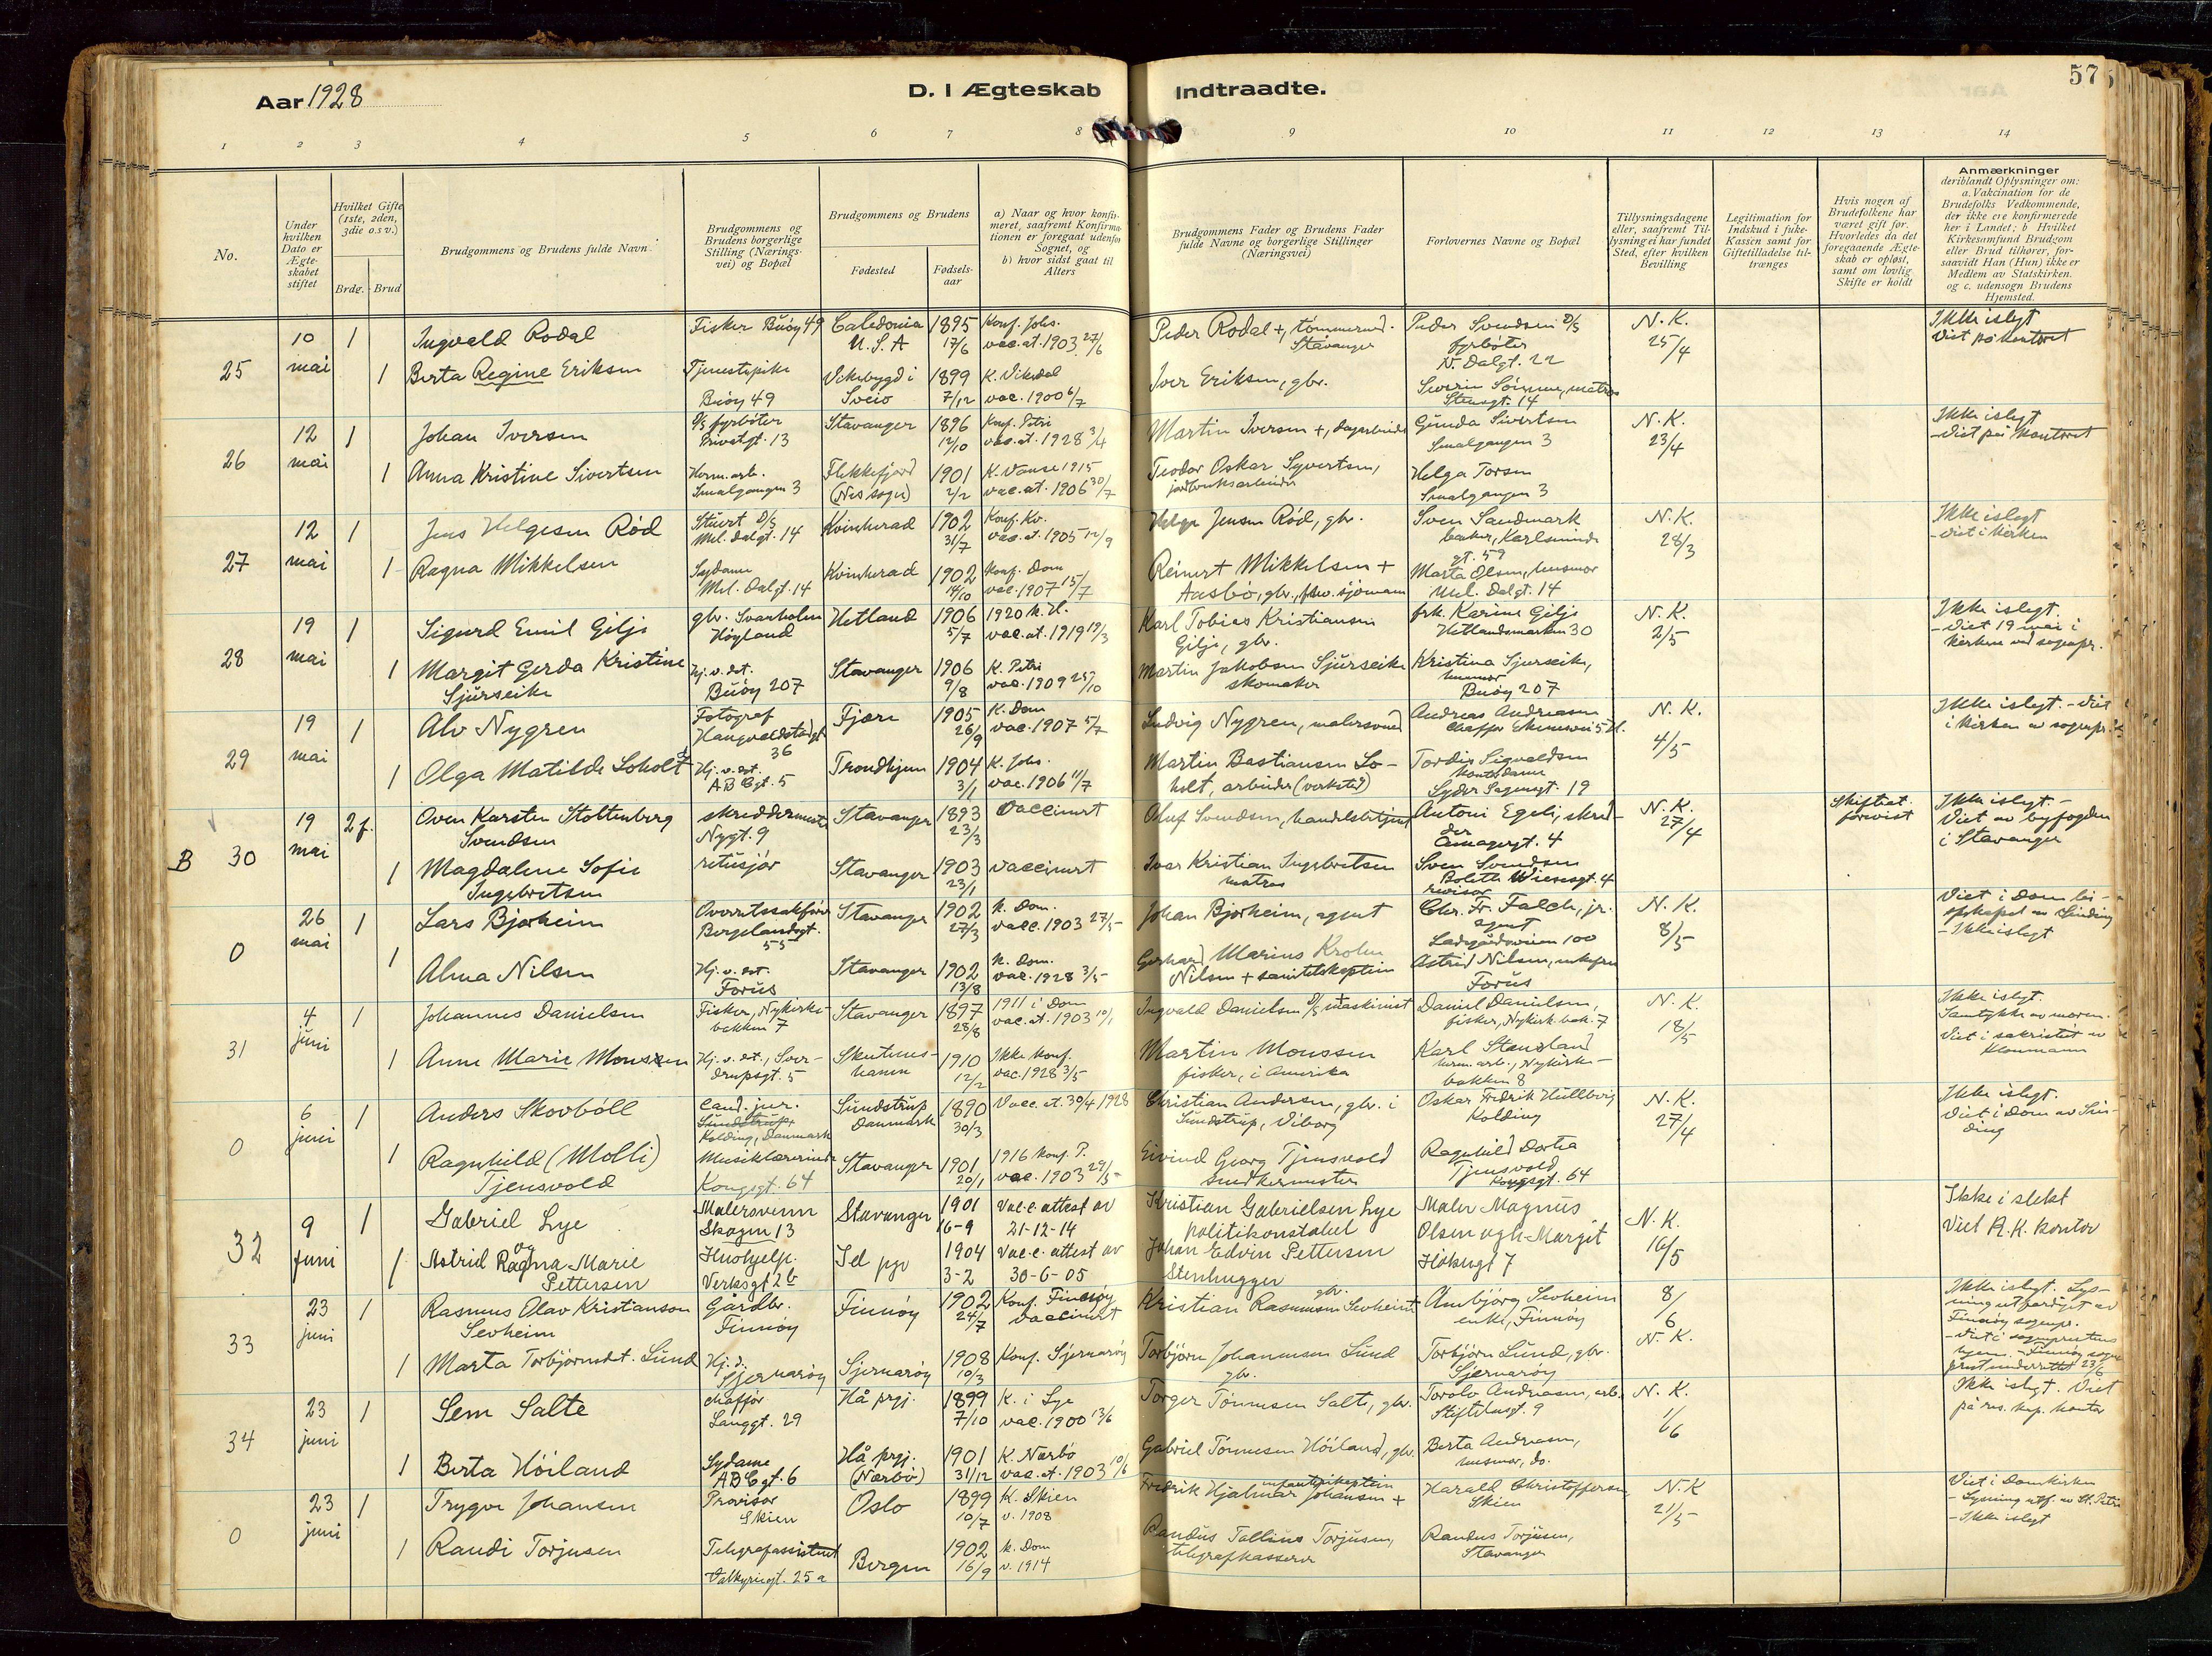 Aar 1928
D. I Ægteskab Indtraadte.
57
1 2 3 4 5 6 7 8 9 10 11 12 13 14
No.
Under hvilken Dato er Ægteskabet stiftet
Hvilket Gifte (1ste, 2den, 3die o.s v.)
Brdg. Brud
Brudgommens og Brudens fulde Navn
Brudgommens og Brudens borgerlige Stilling (Næringsvei) og Bopæl
Brudgommens og Brudens
Fødested
Fødselsaar
a) Naar og hvor konfirmeret, saafremt Konfirmationen er foregaaet udenfor Sognet, og
b) hvor sidst gaat til Alters
Brudgommens Fader og Brudens Fader fulde Navne og borgerlige Stillinger (Næringsvei)
Forlovernes Navne og Bopæl
Tillysningsdagene eller, saafremt Tillysning ei har fundet Sted, efter hvilken Bevilling
Legitimation for Indskud i Enke-Kassen samt for Giftetilladelse tiltrænges
Hvis nogen af Brudefolkene har været gift før. Hvorledes da det foregaaende Ægteskab er opløst, samt om lovlig Skifte er holdt
Anmærkninger
deriblandt Oplysninger om: a. Vakcination for de Brudefolks Vedkommende, der ikke ere konfirmerede her i Landet; b Hvilket Kirkesamfund Brudgom eller Brud tilhører, forsaavidt Han (Hun) ikke er Medlem av Statskirken. og c. udensogn Brudens Hjemsted.
25 10 mai 1 Ingvald Rodal Fisker Buøy 49 Caledonia U.S.A 1895 17/6 Konf. Johs. vac.at. 1903 27/6 Peder Rodal +, tømmermd. Stavanger Peder Svendsen D/S fyrbøter N. Dalgt. 22 N.K. 25/4 Ikke i slegt Viet på kontoret
1 Berta Regine Eriksen Tjenestepike Buøy 49 Vikebygd i Sveio 1899 7/12 K. Vikedal vac. 1900 6/7 Iver Eriksen, gbr. Severin Sömme, matros Stensgt. 14
26 12 mai 1 Johan Iversen D/S fyrbøter 13 Stavanger 1896 12/10 Konf. Petri vac.at. 1928 3/4 Martin Iversen +, dagarbeider Gunda Sivertsen Smalgangen 3 N.K. 23/4 Ikke i slegt - Viet på kontoret
1 Anna Kristine Sivertsen Herm. arb. Smalgangen 3 Flekkefjord (Nes sogn) 1901 2/2 K. Vanse 1915 vac.at. 1906 30/7 Teodor Oskar Syvertsen, jordbruksarbeider Helga Torsen Smalgangen 3
27 12 mai 1 Jens Helgesen Rød Stuert D/S Mel. Dalgt. 14 Kvinherad 1902 31/7 Konf. Kv. vac.at. 1905 12/9 Helge Jensen Rød, gbr. Sven Sandmark baker, Karlsminde gt. 59 N.K. 28/3 Ikke i slegt - Viet i kirken
1 Ragna Mikkelsen Sydame Mel. Dalgt. 14 Kvinherad 1902 14/10 Konf. Dom vac. 1907 15/7 Reinert Mikkelsen + Aasbø, gbr., fhv. sjømann Marta Olsen, husmor Mel. Dalgt. 14
28 19 mai 1 Sigurd Emil Gilje gbr. Svanholmen Høgland Hetland 1906 5/7 1920 K. H. vac.at. 1919 19/3 Karl Tobias Kristiansen Gilje, gbr. frk. Karine Gilje Hetlandsmarken 30 N.K. 2/5 Ikke i slegt. - Viet 19 mai i kirken ved sognepr.
1 Margit Gerda Kristine Sjürseike Hj. v. det. Buøy 207 Stavanger 1906 9/8 K. Petri vac. 1909 25/10 Martin Jakobsen Sjürseike skomaker Kristina Sjurseike, husmor Buøy 207
29 19 mai 1 Alv Nygren Fotograf Haugvaldstadgt 36 Fjære 1905 26/9 K. Dom vac. 1907 5/7 Ludvig Nygren, malersvend Andreas Andreasen N.K. 4/5 Ikke i slegt. - Viet i kirken av sognepr.
1 Olga Matilde Soholt Hj. v. det. A B C gt. 5 Trondhjem 1904 3/1 K. Johs. vac. 1906 11/7 Martin Bastiansen Soholt, arbeider (verksted) Tordis Sigvaldsen kontordame Syder Sagensgt. 19
B 30 19 mai 2 f. Oven Karsten Stoltenberg Svendsen skreddermester Nygt. 9 Stavanger 1893 23/3 vaccinert Oluf Svendsen, handelsbetjent Antoni Egeli, skredder Amagergt. 4 N.K. 27/4 Skifteat. forevist Ikke i slegt. - Viet av byfogden i Stavanger
1 Magdalene Sofie Ingebretsen retusjør Stavanger 1903 23/1 vaccinert Ivar Kristian Ingebretsen matros Sven Svendsen Bolette Wiesesgt. 4 revisor
0 26 mai 1 Lars Bjorheim Overretssakfører Bergelandsgt. 55 Stavanger 1902 27/3 K. Dom. vacc. 1903 27/5 Johan Bjorheim, agent Chr. Fr. Falck, jr. agent Ladegårdsveien 100 N.K. 8/5 Viet i Dom - Ikke i slegt
1 Alma Nilsen Hj. v. det. Forus Stavanger 1902 13/8 K. Dom. vac. 1928 3/5 Gerhard Marius Krohn Nilsen + sanitetskaptein Astrid Nilsen, enkefru Forus
31 4 juni 1 Johannes Danielsen Fisker, Nykirkebakken 7 Stavanger 1897 28/8 1911 i Dom vac.at. 1903 10/1 Ingvald Danielsen D/S maskinist Daniel Danielsen, fisker, Nykirk.bak. 7 N.K. 18/5 Ikke i slegt. Samtykke av moren. Viet i sakristiet av Klonmann
1 Anne Marie Monssen Hj. v. det., Sverdrupsgt. 5 Skutneshavn 1910 12/2 Ikke konf. vac. 1928 3/5 Martin Monssen fisker, i Amerika Karl Stensland herm. arb., Nykirkebakken 8
0 6 juni 1 Anders Skovböll Cand. jur. Sundstrup Kolding, Danmark Sundstrup Danmark 1890 30/3 Vacc. at. 30/4 1928 Christian Andersen, gbr. i Sundstrup, Viborg Oskar Fredrik Hüllberg Kolding N.K. 27/4 Ikke i slegt. Viet i Dom av Sinding
1 Ragnhild (Molli) Tjensvold Musiklærerinde Kongsgt. 64 Stavanger 1901 20/1 1916 Konf. P. vac. 1903 29/5 Eivind Georg Tjensvold snedkermester Ragnhild Dortea Tjensvold Kongsgt. 64
32 9 juni 1 Gabriel Lye Malersvenn Skagen 13 Stavanger 1901 16-9 Vacc. attest av 21-12-14 Kristian Gabrielsen Lye politikonstabel Maler Magnus Olsen og h. Margit Håkensgt 7 N.K. 16/5 Ikke i slekt Viet R.K. kontor
1 Astrid Ragna Marie Pettersen Hushjelp. Verksgt 2b 1904 3-2 Vacc. attest av 30-6-05 Johan Edvin Pettersen Stenhugger
33 23 juni 1 Rasmus Olav Kristianson Sevheim Gårdbr. Finnøy Finnøy 1902 24/7 Konf. Finnøy vaccinert Kristian Rasmussen Sevheim + gbr. Ambjörg Sevheim enke, Finnøy 8/6 N.K. Ikke i slegt. Lysning utferdiget av Finnøy sognepr. - Viet i sogneprestens hjem. - Finnøy sogneprest underrettet 23/6
1 Marta Torbjørnsdt. Lund Hj. d. Sjernarøy Sjernarøy 1908 10/3 Konf. Sjernarøy Torbjörn Johannesen Lund gbr. Torbjörn Lund, gbr. Sjernarøy
34 23 juni 1 Sem Salte sjåffør Langgt. 29 Hå prgj. 1899 7/10 K. i Lye vac. 1900 13/6 Torger Tönnesen Salte, gbr. Torolv Andreasen, arb. Stiftelsesgt. 9 N.K. 1/6 Ikke i slegt. Viet på res. kap. kontor
1 Berta Höiland Sydame A B C gt. 6 Hå prgj. (Nærbø) 1901 31/12 K. Nærbø vac.at. 1903 10/6 Gabriel Tönnesen Höiland, gbr. Berta Andreasen, husmor, do.
0 23 juni 1 Trygve Johansen Provisor Skien Oslo 1899 10/7 K. Skien v. 1908 Fredrik Hjalmar Johansen + infanterikaptein Harald Christoffersen Skien N.K 21/5 Viet i Domkirken - Lysning utf. av St. Petri - Ikke i slegt
1 Randi Torjusen Telegrafassistent Valkyriegt. 25 a Bergen 1902 16/9 K. Dom v. 1914 Randus Tallius Torjusen, telegrafkasserer Randus Torjusen, Stavanger